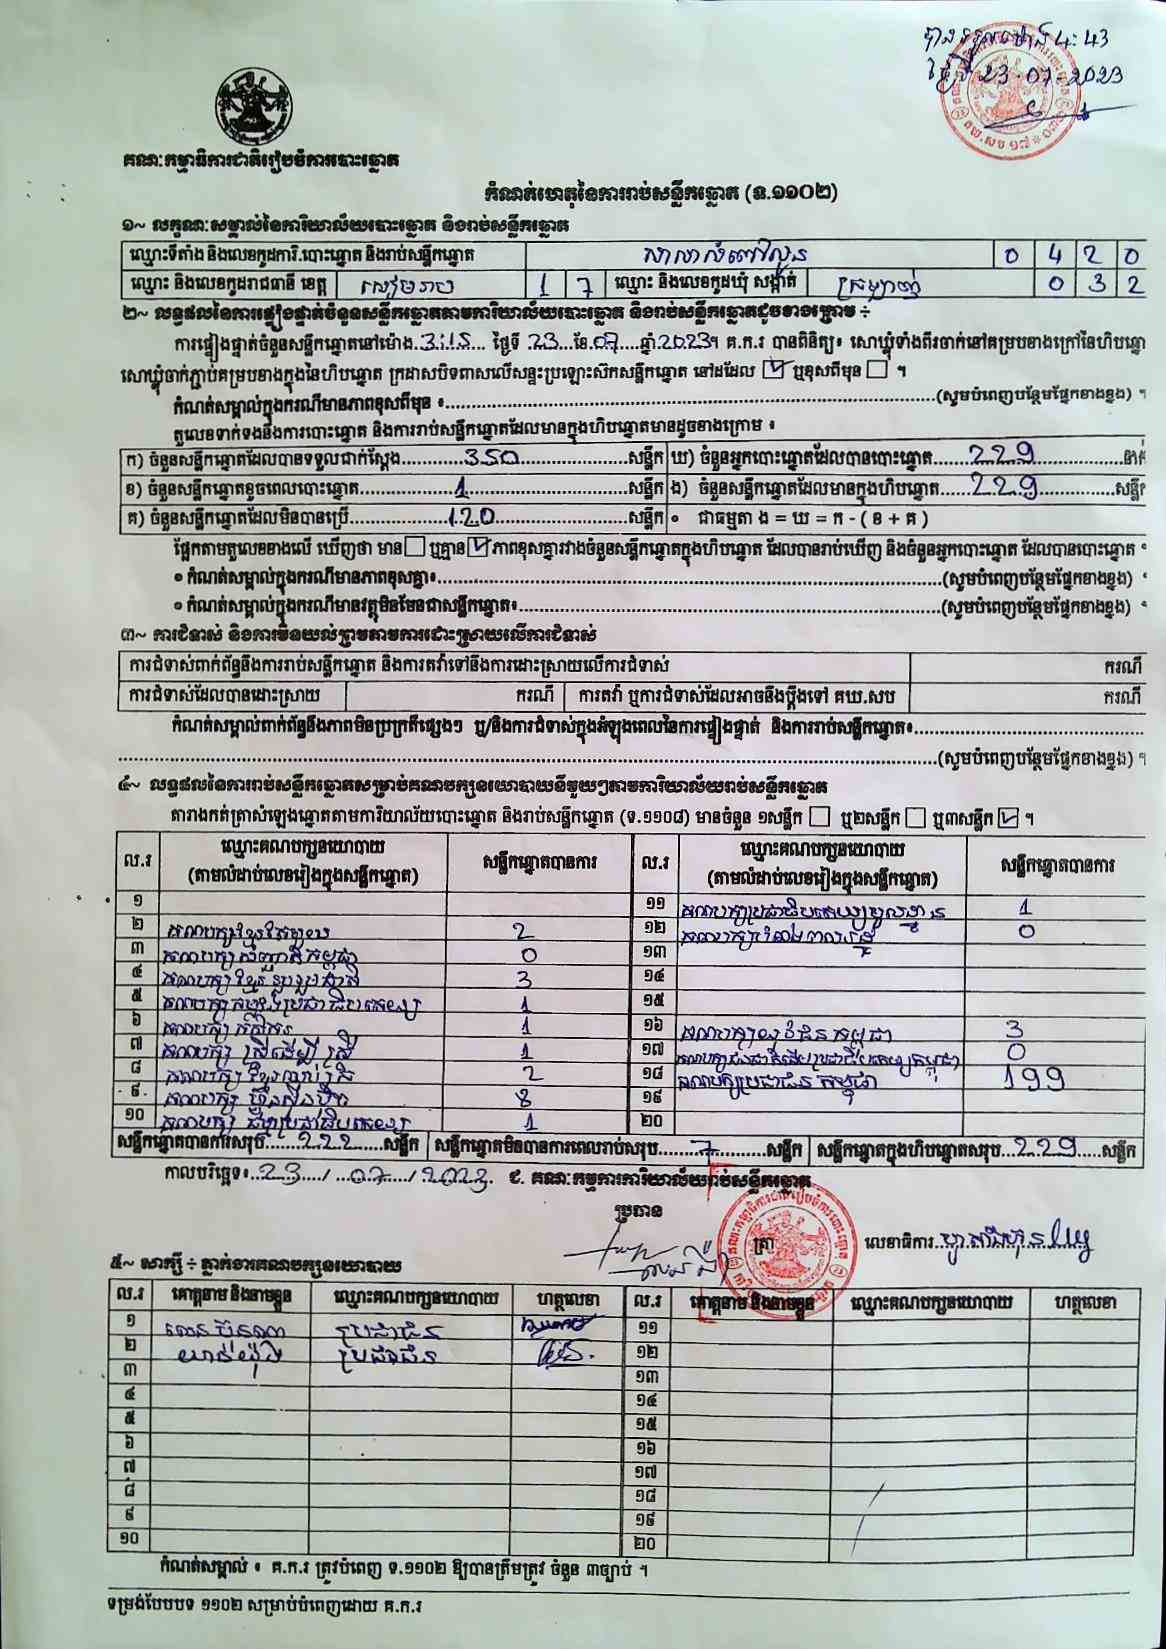 បានទទួលម៉ោង 4:43
ថ្ងៃទី 23-07-2023
គណៈកម្មាធិការជាតិរៀបចំការបោះឆ្នោត
កំណត់ហេតុនៃការរាប់សន្លឹកឆ្នោត (ទ.១១០២)
១~ លក្ខណៈសម្គាល់នៃការិយាល័យបោះឆ្នោត និងរាប់សន្លឹកឆ្នោត
ឈ្មោះទីតាំង និងលេខកូដការិ.បោះឆ្នោត និងរាប់សន្លឹកឆ្នោត 0 4 2 0
ឈ្មោះ និងលេខកូដរាជធានី ខេត្ត សៀមរាប 1 7 ឈ្មោះ និងលេខកូដឃុំ សង្កាត់ ក្រឡាញ់ 0 3 2
២~ លទ្ធផលនៃការផ្ទៀងផ្ទាត់ចំនួនសន្លឹកឆ្នោតតាមការិយាល័យបោះឆ្នោត និងរាប់សន្លឹកឆ្នោតដូចខាងក្រោម ÷
ការផ្ទៀងផ្ទាត់ចំនួនសន្លឹកឆ្នោតនៅម៉ោង 3:15 ថ្ងៃទី 23 ខែ 07 ឆ្នាំ 2023។ គ.ក.រ បានពិនិត្យ៖ សោឃ្លុំទាំងពីរចាក់នៅគម្របខាងក្រៅនៃហិបឆ្នោ
សោឃ្លុំចាក់ភ្ជាប់គម្របខាងក្នុងនៃហិបឆ្នោត ក្រដាសបិទពាសលើសន្ទះប្រឡោះសិកសន្លឹកឆ្នោត នៅដដែល ☑ ឬខុសពីមុន ☐ ។
កំណត់សម្គាល់ក្នុងករណីមានភាពខុសពីមុន ៖..........(សូមបំពេញបន្ថែមផ្នែកខាងខ្នង) ។
តួលេខទាក់ទងនឹងការបោះឆ្នោត និងការរាប់សន្លឹកឆ្នោតដែលមានក្នុងហិបឆ្នោតមានដូចខាងក្រោម ៖
ក) ចំនួនសន្លឹកឆ្នោតដែលបានទទួលជាក់ស្តែង 350 សន្លឹក ឃ) ចំនួនអ្នកបោះឆ្នោតដែលបានបោះឆ្នោត 229 នាក់
ខ) ចំនួនសន្លឹកឆ្នោតខូចពេលបោះឆ្នោត 1 សន្លឹក ង) ចំនួនសន្លឹកឆ្នោតដែលមានក្នុងហិបឆ្នោត 229 សន្លឹក
គ) ចំនួនសន្លឹកឆ្នោតដែលមិនបានប្រើ 120 សន្លឹក ● ជាធម្មតា ង = ឃ = ក - ( ខ + គ )
ផ្អែកតាមតួលេខខាងលើ ឃើញថា មាន ☐ ឬគ្មាន ☑ ភាពខុសគ្នារវាងចំនួនសន្លឹកឆ្នោតក្នុងហិបឆ្នោត ដែលបានរាប់ឃើញ និងចំនួនអ្នកបោះឆ្នោត ដែលបានបោះឆ្នោត ។
● កំណត់សម្គាល់ក្នុងករណីមានភាពខុសគ្នា៖..........(សូមបំពេញបន្ថែមផ្នែកខាងខ្នង) ។
● កំណត់សម្គាល់ក្នុងករណីមានវត្ថុមិនមែនជាសន្លឹកឆ្នោត៖..........(សូមបំពេញបន្ថែមផ្នែកខាងខ្នង) ។
៣~ ការជំទាស់ និងការមិនយល់ព្រមតាមការដោះស្រាយលើការជំទាស់
ការជំទាស់ពាក់ព័ន្ធនឹងការរាប់សន្លឹកឆ្នោត និងការតវ៉ាទៅនឹងការដោះស្រាយលើការជំទាស់ ករណី
ការជំទាស់ដែលបានដោះស្រាយ ករណី ការតវ៉ា ឬការជំទាស់ដែលអាចនឹងប្តឹងទៅ គឃ.សប ករណី
កំណត់សម្គាល់ពាក់ព័ន្ធនឹងភាពមិនប្រក្រតីផ្សេងៗ ឬ/និងការជំទាស់ក្នុងអំឡុងពេលនៃការផ្ទៀងផ្ទាត់ និងការរាប់សន្លឹកឆ្នោត៖..........
..........(សូមបំពេញបន្ថែមផ្នែកខាងខ្នង) ។
៤~ លទ្ធផលនៃការរាប់សន្លឹកឆ្នោតសម្រាប់គណបក្សនយោបាយនីមួយៗតាមការិយាល័យរាប់សន្លឹកឆ្នោត
តារាងកត់ត្រាសំឡេងឆ្នោតតាមការិយាល័យបោះឆ្នោត និងរាប់សន្លឹកឆ្នោត (ទ.១១០៨) មានចំនួន ១សន្លឹក ☐ ឬ២សន្លឹក ☐ ឬ៣សន្លឹក ☑ ។
ល.រ ឈ្មោះគណបក្សនយោបាយ (តាមលំដាប់លេខរៀងក្នុងសន្លឹកឆ្នោត) សន្លឹកឆ្នោតបានការ ល.រ ឈ្មោះគណបក្សនយោបាយ (តាមលំដាប់លេខរៀងក្នុងសន្លឹកឆ្នោត) សន្លឹកឆ្នោតបានការ
១ ១១ គណបក្សប្រជាធិបតេយ្យមូលដ្ឋាន 1
២ គណបក្សខ្មែរតែមួយ 2 ១២ គណបក្ស 0
៣ គណបក្សសញ្ជាតិកម្ពុជា 0 ១៣
៤ គណបក្សខ្មែររួបរួមជាតិ 3 ១៤
៥ គណបក្សកម្លាំងប្រជាធិបតេយ្យ 1 ១៥
៦ គណបក្សកសិករ 1 ១៦ គណបក្សយុវជនកម្ពុជា 3
៧ គណបក្សស្រីដើម្បីស្រី 1 ១៧ គណបក្សជនជាតិដើមប្រជាធិបតេយ្យកម្ពុជា 0
៨ គណបក្សខ្មែរឈប់ក្រ 2 ១៨ គណបក្សប្រជាជនកម្ពុជា 199
៩ គណបក្សហ្វ៊ុនស៊ិនប៉ិច 8 ១៩
១០ គណបក្សធម្មាធិបតេយ្យ 1 ២០
សន្លឹកឆ្នោតបានការសរុប 222 សន្លឹក សន្លឹកឆ្នោតមិនបានការពេលរាប់សរុប 7 សន្លឹក សន្លឹកឆ្នោតក្នុងហិបឆ្នោតសរុប 229 សន្លឹក
កាលបរិច្ឆេទ៖ 23 / 07 / 2023 ជ. គណៈកម្មការការិយាល័យរាប់សន្លឹកឆ្នោត
ប្រធាន
ត្រា លេខាធិការ
៥~ សាក្សី ÷ ភ្នាក់ងារគណបក្សនយោបាយ
ល.រ គោត្តនាម និងនាមខ្លួន ឈ្មោះគណបក្សនយោបាយ ហត្ថលេខា ល.រ គោត្តនាម និងនាមខ្លួន ឈ្មោះគណបក្សនយោបាយ ហត្ថលេខា
១ ប្រជាជន ១១
២ ប្រជាជន ១២
៣ ១៣
៤ ១៤
៥ ១៥
៦ ១៦
៧ ១៧
៨ ១៨
៩ ១៩
១០ ២០
កំណត់សម្គាល់ ៖ គ.ក.រ ត្រូវបំពេញ ទ.១១០២ ឱ្យបានត្រឹមត្រូវ ចំនួន ៣ច្បាប់ ។
ទម្រង់បែបបទ ១១០២ សម្រាប់បំពេញដោយ គ.ក.រ